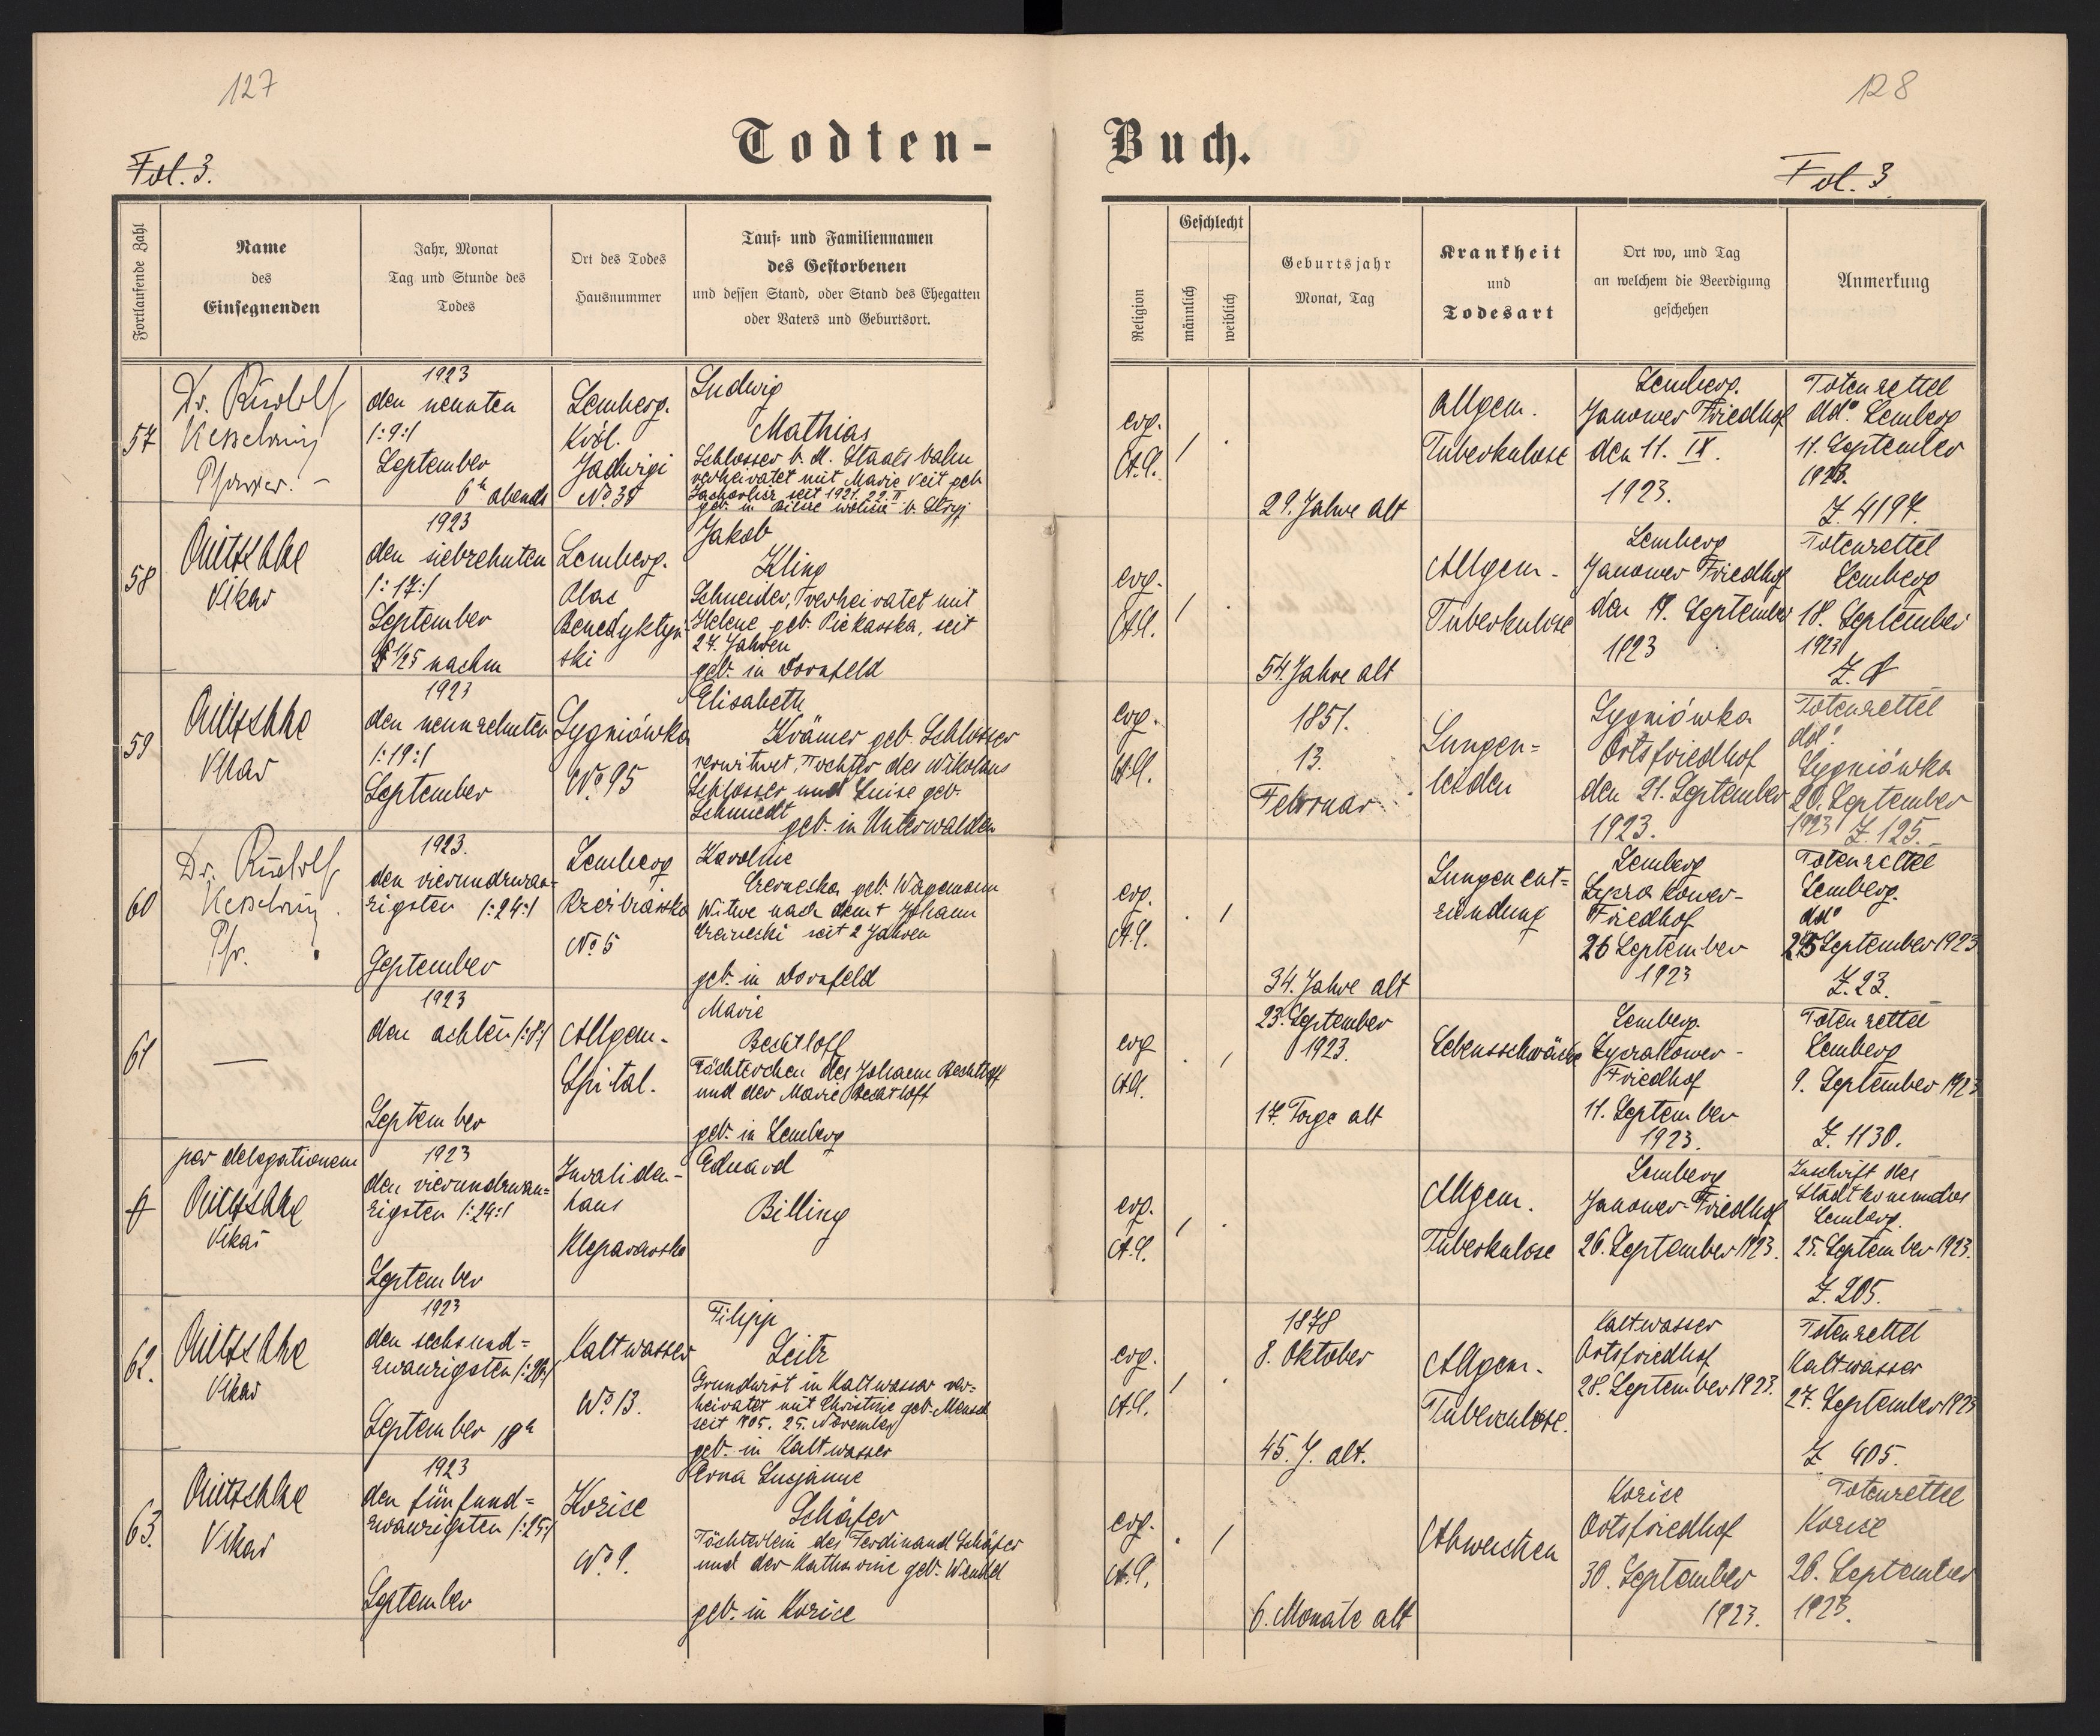 127
128
Todten-
Buch.
Fol. 3.
Fol. 3
Fortlaufende Zahl
Name
des
Einsegnenden
Jahr, Monat
Tag und Stunde des
Todes
Ort des Todes
Hausnummer
Tauf- und Familiennamen
des Gestorbenen
und dessen Stand, oder Stand des Ehegatten
oder Vaters und Geburtsort.
Religion
Geschlecht
männlich
weiblich
Geburtsjahr
Monat, Tag
Krankheit
und
Todesart
Ort wo, und Tag
an welchem die Beerdigung
geschehen
Anmerkung
57
Dr. Rudolf
Kesselring
Pfarrer. -
1923
den neunten
/:9:/
September
6h abends
Lemberg.
Król.
Jadwigi
No 37
Ludwig
Mathias
Schlosser b. d. Staatsbahn
verheiratet mit Marie Veit geb.
seit 1921. 22. II
evg.
A.C.
/ .
29. Jahre alt
allgem.
Tuberkulose
Lemberg.
Janower Friedhof
den 11. IX.
1923.
Totenzettel
ddo Lemberg
11. September
1923.
Z. 4197.
58
Nitschke
Vikar
1923
den siebzehnten
/:17:/
September
1/25 nachm
Lemberg.
Plac
Benedyktyn-
ski
Jakob
Kling
Schneider, verheiratet mit
Helene geb. Piekarska, seit
27. Jahren
geb. in Dornfeld
evg.
A.C.
/ .
54. Jahre alt
Allgem.
Tuberkulose
Lemberg
Janower Friedhof
den 19. September
1923
Totenzettel
Lemberg
18. September
1923
59
Nitschke
Vikar
1923
den neunzehnten
/:19:/
September
Sygniówka
No 95
Elisabeth
Krämer geb. Schlosser
verwitwet, Tochter des Nikolaus
Schlosser und Luise geb.
Schmidt
geb. in Unterwalden
evg.
A.C.
1851.
13.
Februar
Lungen=
leiden
Sygniówka
Ortsfriedhof
den 21. September
1923.
Totenzettel
ddo.
Sygniówka
20. September
1923 Z. 125.
60
Dr. Rudolf
Kesselring.
Pfr.
1923.
den vierundzwan=
zigsten /:24:/
September
Lemberg
No 5
Karoline
geb. Wagemann
Witwe nach dem + Johann
seit 2 Jahren
geb. in Dornfeld
evg.
A.C.
. /
34. Jahre alt
Lungenent=
zündung
Lemberg
Lyczakower-
Friedhof
26 September
1923
Totenzettel
Lemberg.
ddo
25 September 1923
Z. 23.
61
—
1923
den achten /:8:/
September
Allgem.
Spital.
Marie
Bechtloff
Töchterchen des Johann Bechtloff
und der Marie Bechtloff
geb. in Lemberg
evg
A.C.
. /
23. September
1923.
17. Tage alt
Lebensschwäche
Lemberg.
Lyczakower-
Friedhof
11. September
1923.
Totenzettel
Lemberg
9. September 1923
Z. 1130.
per delegationem
Nitschke
Vikar
1923
den vierundzwan=
zigsten /:24:/
September
Invaliden-
haus
Kleparowska
Eduard
Billing
evg.
A.C.
/ .
Allgem.
Tuberkulose
Lemberg
Janower-Friedhof
26. September 1923.
Zuschrift des
Stadtkommandos
Lemberg.
25. September 1923.
Z. 205.
62.
Nitschke
Vikar
1923
den sechsund=
zwanzigsten /:26:/
September 18h
Kaltwasser
No 13.
Filipp
Seitz
Grundwirt in Kaltwasser ver=
heiratet mit Christine geb. Mensch
seit 905. 25. November
geb. in Kaltwasser
evg.
A.C.
/ .
1878
8. Oktober
45. J. alt.
Allgem.
Tuberculose.
Kaltwasser
Ortsfriedhof
28. September 1923.
Totenzettel
Kaltwasser
27. September 1923
Z 405.
63.
Nitschke
Vikar
1923
den fünfund=
zwanzigsten /:25:/
September
Korice
No 9.
Erna Susanne
Schäfer
Töchterlein des Ferdinand Schäfer
und der Katharine geb. Wendel
geb. in Korice
evg.
A.C.
. /
6. Monate alt
Abweichen
Korice
Ortsfriedhof
30. September
1923.
Totenzettel
Korice
26. September
1923.